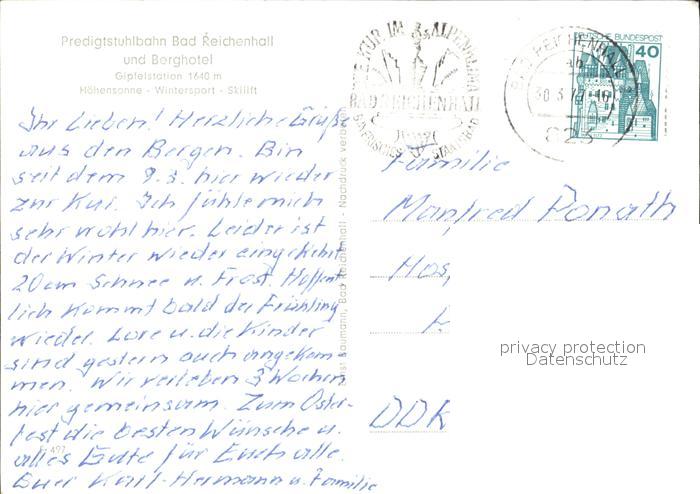 Predigtstuhlbahn Bad Reichenhall
und Berghotel
Gipfelstation 1640 m
Höhensonne - Wintersport - Skilift
Ihr Lieben! Herzliche Grüße
aus den Bergen. Bin
seit dem 9.3. hier wieder
zur Kur. Ich fühle mich
sehr wohl hier. Leider ist
der Winter wieder eingekehrt
20 cm Schnee u. Frost. Hoffent
lich kommt bald der Frühling
wieder. Lore u. die Kinder
sind gestern auch angekom-
men. Wir verleben 3 Wochen
hier gemeinsam. Zum Oster-
fest die besten Wünsche u.
alles Gute für Euch alle.
Euer Karl-Hermann u. Familie
497
Baumann, Bad Reichenhall - Nachdruck verboten
KUR IM ALPENKLIMA
BAD REICHENHALL
BAYERISCHES STAATSBAD
BAD REICHENHALL
30.3.77
823
DEUTSCHE BUNDESPOST
40
Familie
Manfred Donath
DDR
privacy protection
Datenschutz